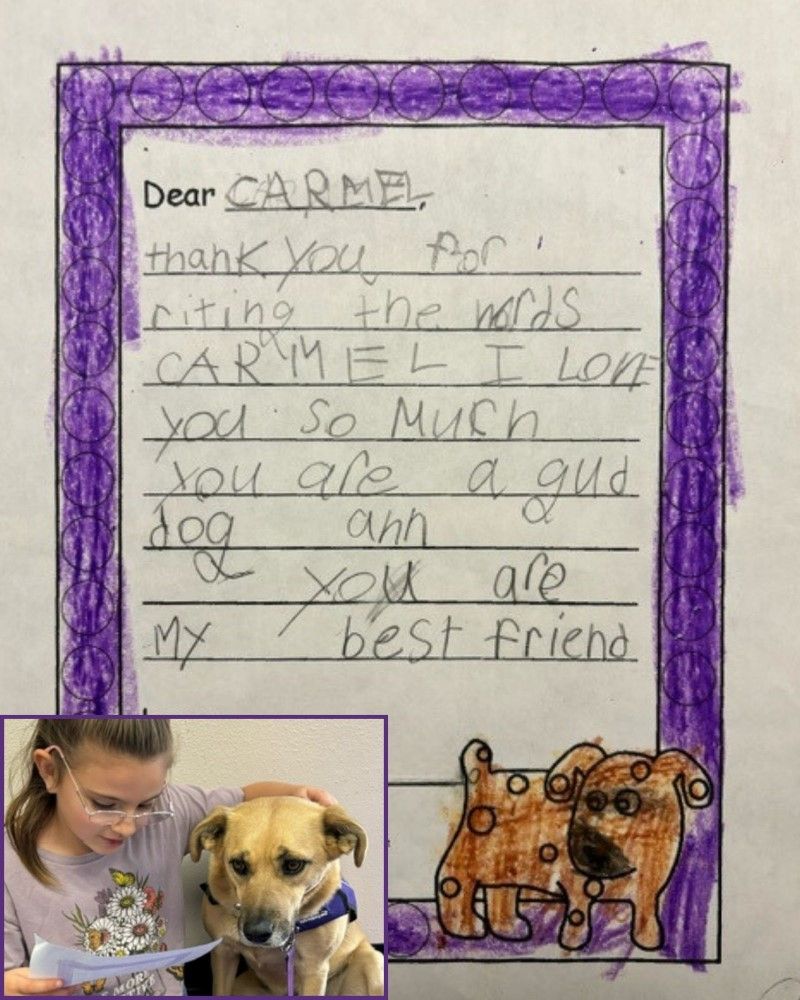 Dear CARMEL,
thank you for
riting the words
CARMEL I LOVE
you so much
you are a gud
dog ann
you are
My best friend
MORE